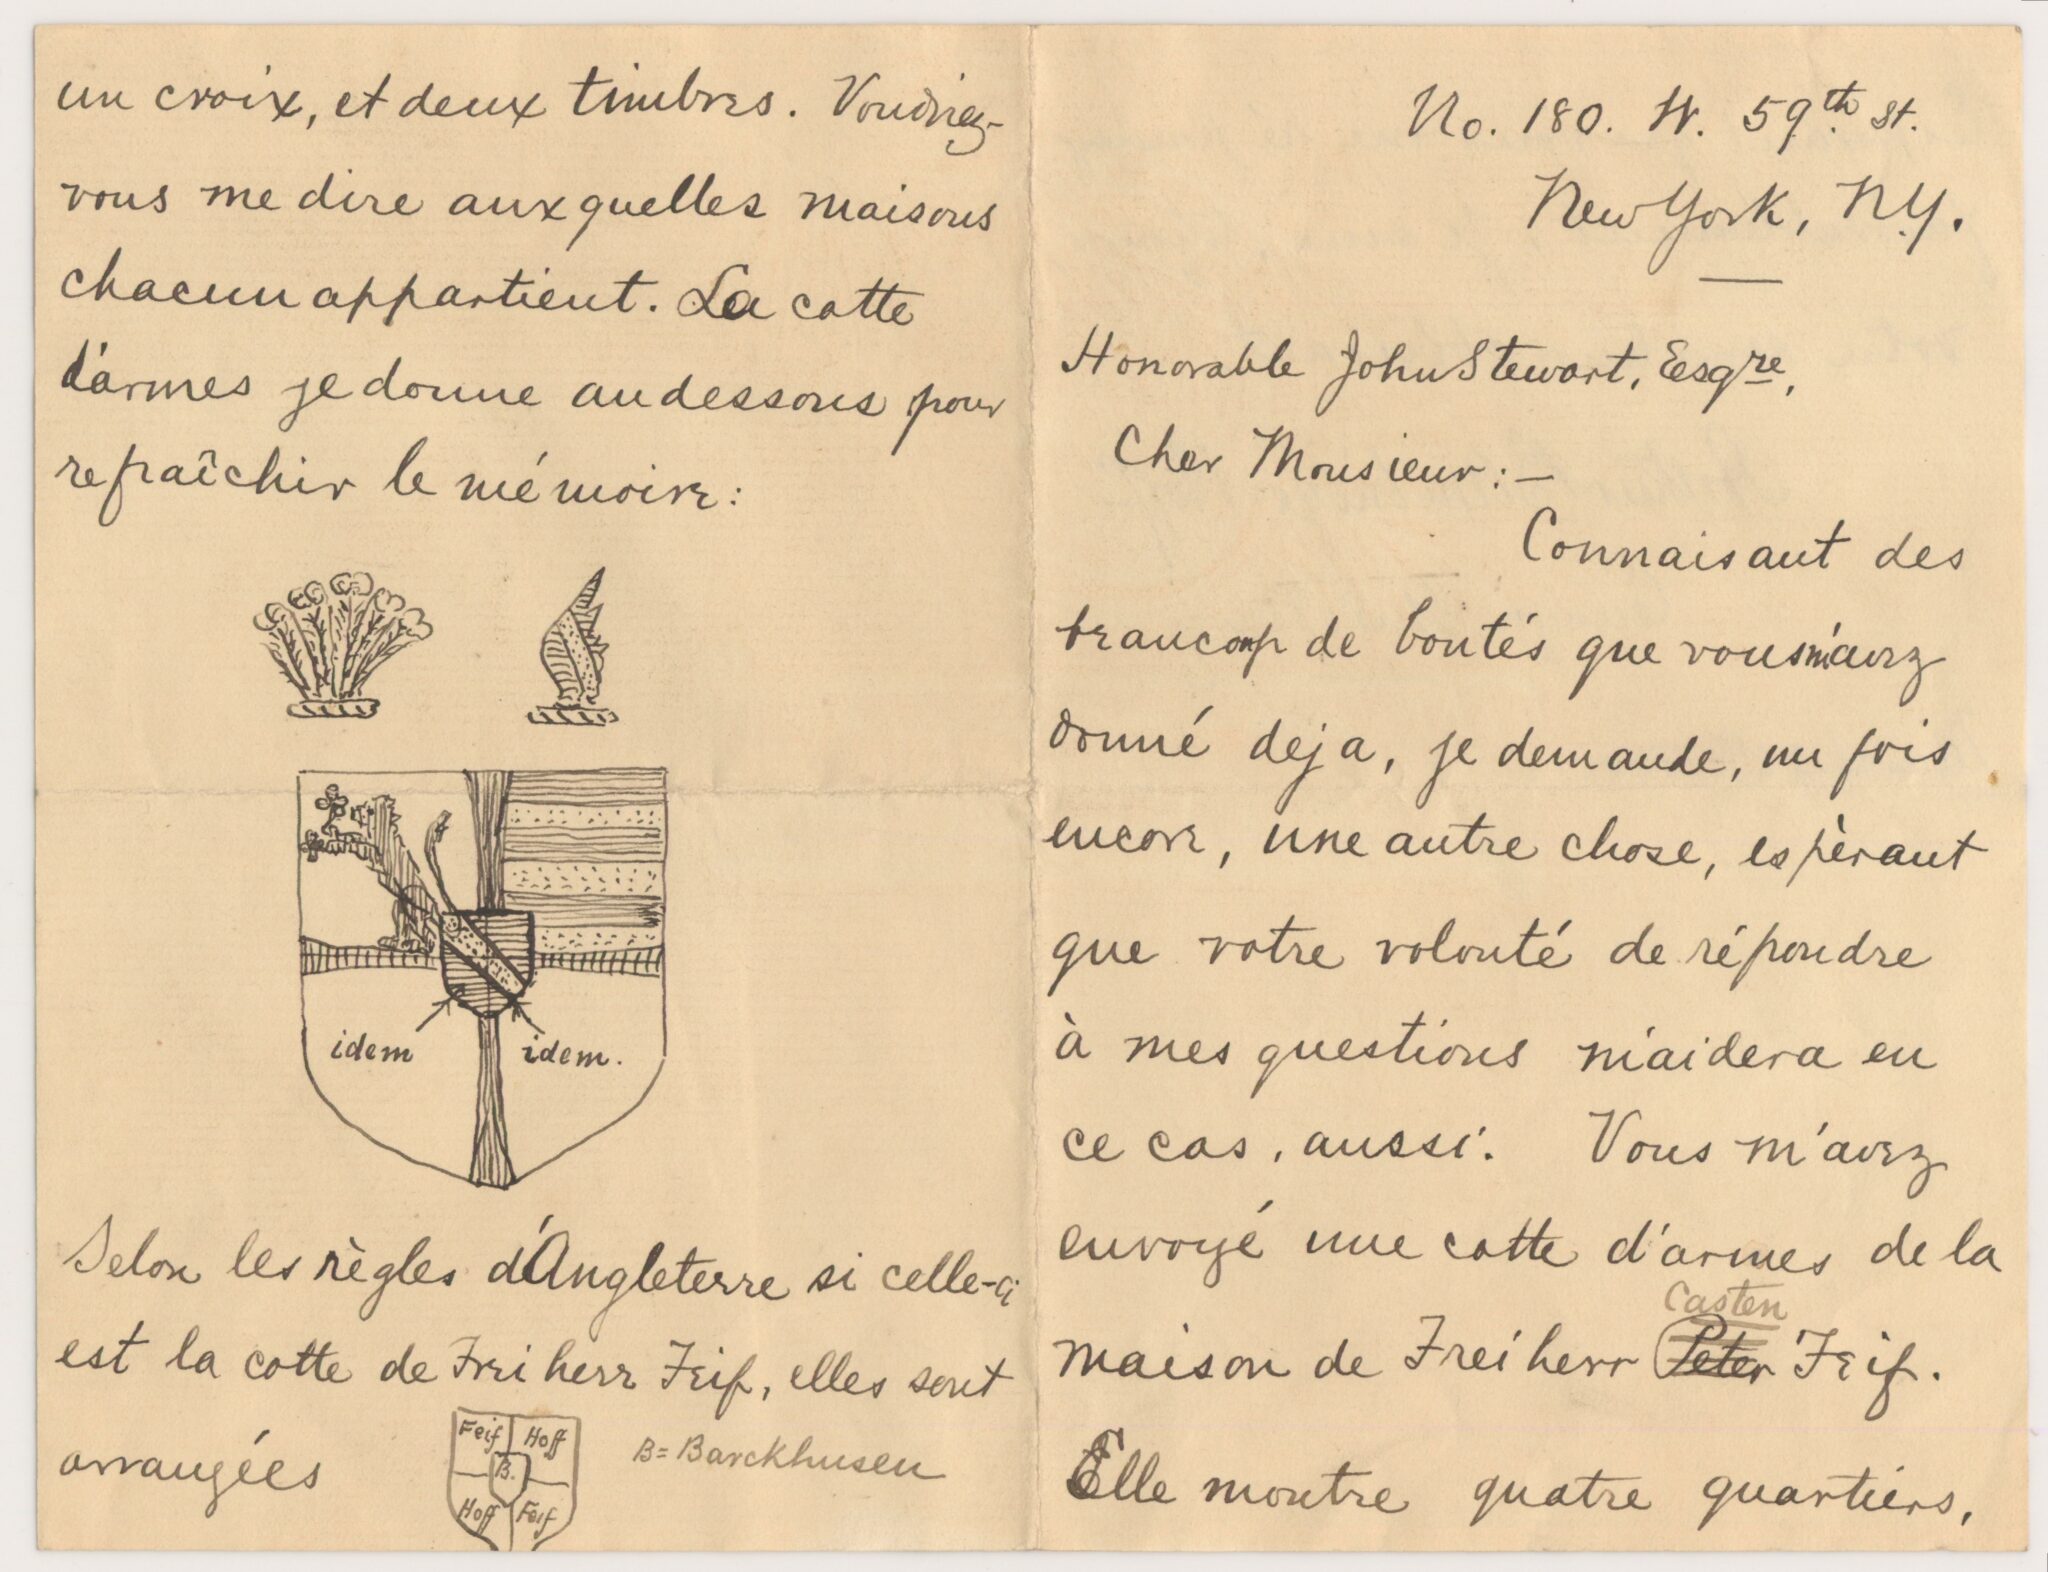 No. 180. W. 59th. St.
New York, N.Y.
Honorable John Stewart, Esqre,
Cher Monsieur:—
Connaisant des
beaucoup de bontés que vous m'avez
donné deja, je demande, un fois
encore, une autre chose, espèrant
que votre volonté de répondre
à mes questions m'aidera en
ce cas, aussi. Vous m'avez
envoyé une cotte d'armes de la
Casten
maison de Freiherr Peter Feif.
Elle montre quatre quartiers,
un croix, et deux timbres. Voudriez-
vous me dire auxquelles maisons
chacun appartient. La cotte
d'armes je donne au dessous pour
refraîchir le mémoire:
idem idem.
Selon les règles d'Angleterre si celle-ci
est la cotte de Freiherr Feif, elles sont
arrangées
Feif Hoff
B.
Hoff Feif
B = Barckhusen